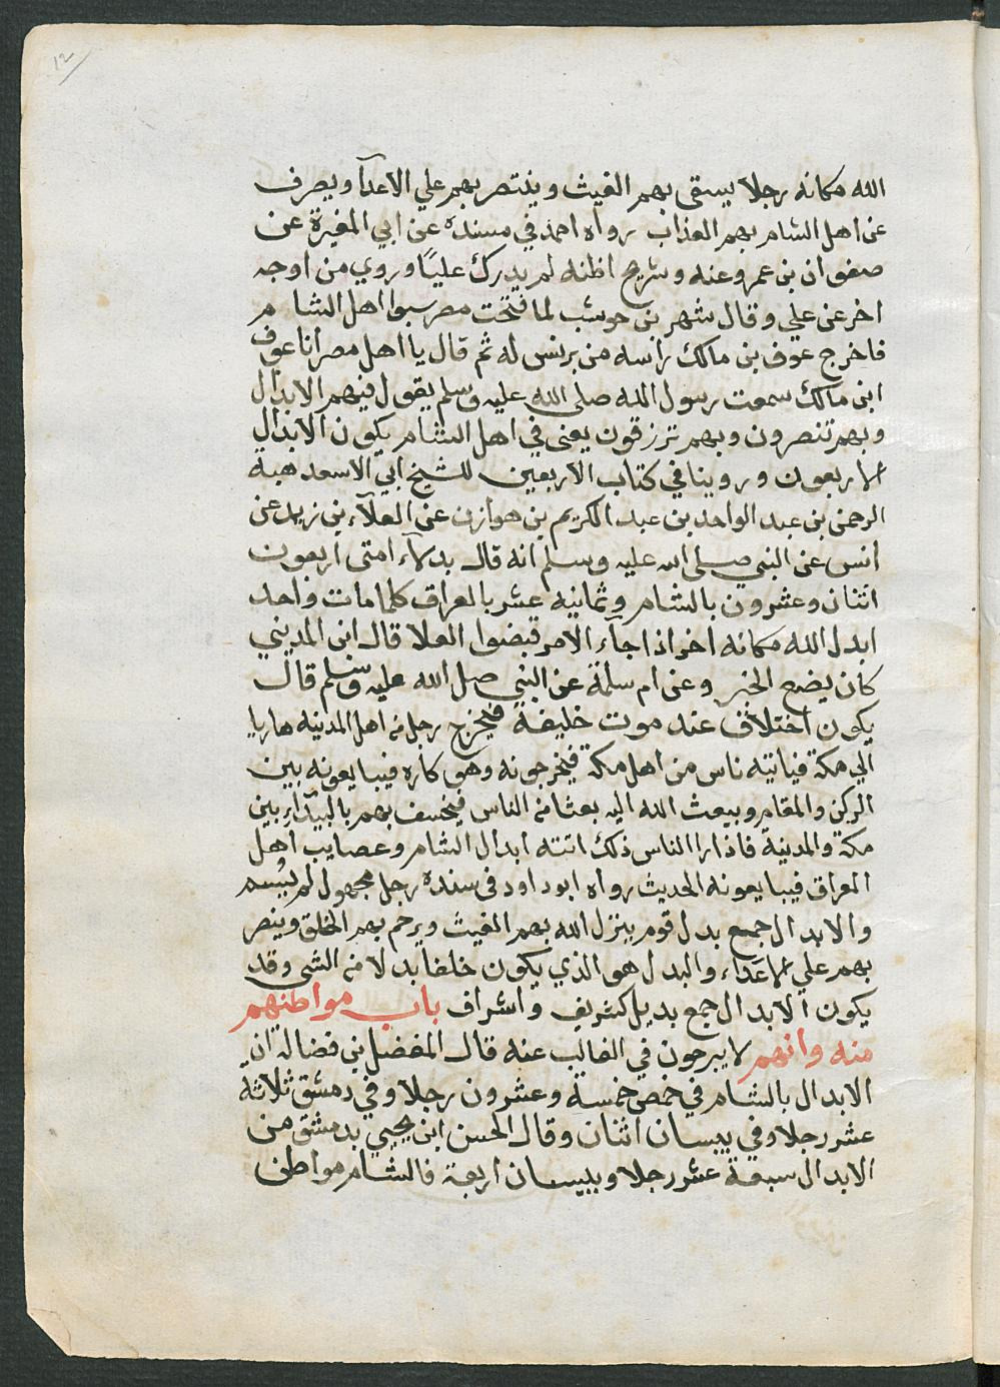 ١٢
الله مكانه رجلا يسقى بهم الغيث وينتصر بهم علي الاعدآ ويصرف
عن اهل الشام بهم العذاب رواه احمد في مسنده عن ابي المغيرة عن
صفوان بن عمرو عنه وشريح اظنه لم يدرك عليًا وروي من اوجه
اخر عن علي وقال شهر بن حوشب لما فتحت مصر سبوا اهل الشام
فاخرج عوف بن مالك راسه من برنس له ثم قال يا اهل مصر انا عوف
ابن مالك سمعت رسول الله صلى الله عليه وسلم يقول فيهم الابدال
وبهم تنصرون وبهم ترزقون يعنى في اهل الشام يكون الابدال
الاربعون وروينا في كتاب الاربعين للشيخ ابي الاسعد هبة
الرحمن بن عبد الواحد بن عبد الكريم بن هوازن عن العلآء بن زيد عن
انس عن النبي صلى الله عليه وسلم انه قال بدلآء امتى اربعون
اثنان وعشرون بالشام وثمانيه عشر بالعراق كلما مات واحد
ابدل الله مكانه اخر اذا جآء الامر قبضوا العلا قال ابن المديني
كان يضع الخبر وعن ام سلمة عن النبي صلى الله عليه وسلم قال
يكون اختلاف عند موت خليفة فيخرج رجل من اهل المدينه هاربا
الي مكة فياتيه ناس من اهل مكة فيخرجونه وهو كاره فيبايعونه بين
الركن والمقام ويبعث الله اليه بعثا من الناس فيخسف بهم بالبيدآء بين
مكة والمدينة فاذا راا الناس ذلك اتته ابدال الشام وعصايب اهل
العراق فيبايعونه الحديث رواه ابو داود فى سنده رجل مجهول لم يُسم
والابدال جمع بدل قوم ينزل الله بهم الغيث ويرحم بهم الخلق وينصر
بهم علي الاعدآء والبدل هو الذي يكون خلفا بدلا من الشى وقد
يكون الابدال جمع بديل كشريف واشراف باب مواطنهم
منه وانهم لا يبرحون في الغالب عنه قال المفضل بن فضالة ان
الابدال بالشام في حمص خمسة وعشرون رجلا وفي دمشق ثلاثة
عشر رجلا وفي بيسان اثنان وقال الحسن ابن يحيي بدمشق من
الابدال سبعة عشر رجلا وببيسان اربعة فالشام مواطن